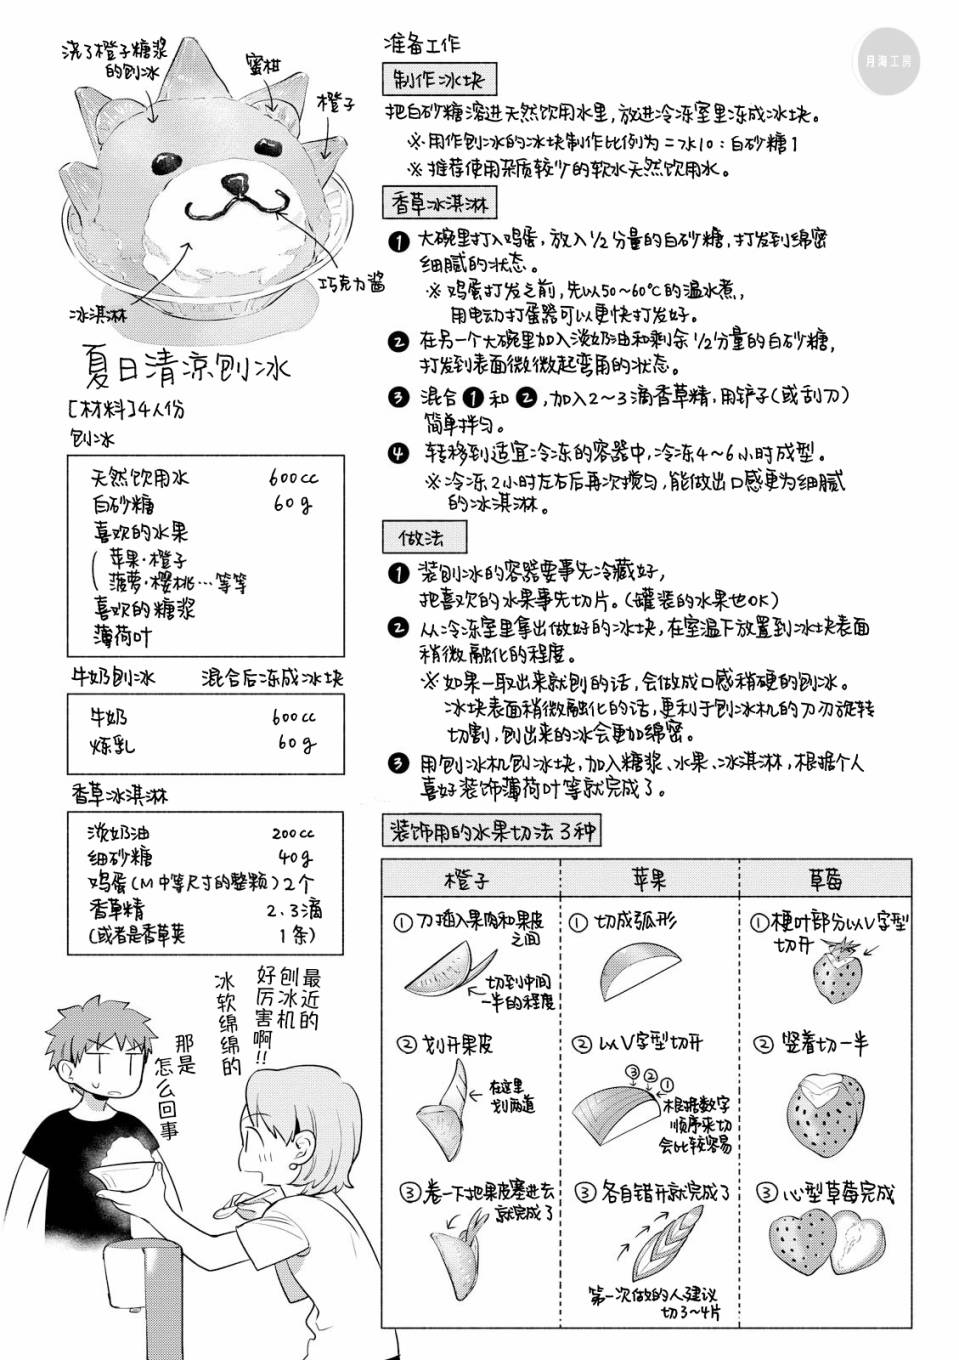 浇了橙子糖浆
的刨冰
蜜柑
橙子
巧克力酱
冰淇淋
夏日清凉刨冰
[材料]4人份
刨冰
天然饮用水 600cc
白砂糖 60g
喜欢的水果
(苹果·橙子
菠萝·樱桃…等等
喜欢的糖浆
薄荷叶
牛奶刨冰 混合后冻成冰块
牛奶 600cc
炼乳 60g
香草冰淇淋
淡奶油 200cc
细砂糖 40g
鸡蛋(M中等尺寸的整颗)2个
香草精 2.3滴
(或者是香草荚 1条)
最近的
刨冰机
好厉害啊!!
冰软绵绵的
那是
怎么回事
月海工房
准备工作
制作冰块
把白砂糖溶进天然饮用水里,放进冷冻室里冻成冰块。
※用作刨冰的冰块制作比例为=水10:白砂糖1
※推荐使用杂质较少的软水天然饮用水。
香草冰淇淋
❶大碗里打入鸡蛋,放入1/2分量的白砂糖,打发到绵密
细腻的状态。
※鸡蛋打发之前,先以50~60℃的温水煮,
用电动打蛋器可以更快打发好。
❷在另一个大碗里加入淡奶油和剩余1/2分量的白砂糖,
打发到表面微微起弯角的状态。
❸混合❶和❷,加入2~3滴香草精,用铲子(或刮刀)
简单拌匀。
❹转移到适宜冷冻的容器中,冷冻4~6小时成型。
※冷冻2小时左右后再次搅匀,能做出口感更为细腻
的冰淇淋。
做法
❶装刨冰的容器要事先冷藏好,
把喜欢的水果事先切片。(罐装的水果也OK)
❷从冷冻室里拿出做好的冰块,在室温下放置到冰块表面
稍微融化的程度。
※如果一取出来就刨的话,会做成口感稍硬的刨冰。
冰块表面稍微融化的话,更利于刨冰机的刀刃旋转
切割,刨出来的冰会更加绵密。
❸用刨冰机刨冰块,加入糖浆、水果、冰淇淋,根据个人
喜好装饰薄荷叶等就完成了。
装饰用的水果切法3种
橙子
①刀插入果肉和果皮
之间
切到中间
一半的程度
②划开果皮
在这里
划两道
③卷一下把果皮塞进去
就完成了
苹果
①切成弧形
②以V字型切开
③
②
①
根据数字
顺序来切
会比较容易
③各自错开就完成了
第一次做的人建议
切3~4片
草莓
①梗叶部分以V字型
切开
②竖着切一半
③心型草莓完成